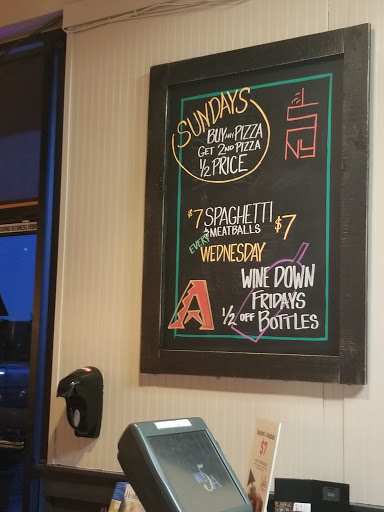 SUNDAYS
BUY ANY PIZZA
GET 2ND PIZZA
1/2 PRICE
NY
$7 SPAGHETTI $7
& MEATBALLS
EVERY
WEDNESDAY
A
WINE DOWN
FRIDAYS
1/2 OFF BOTTLES
$7